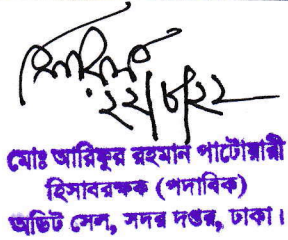 ২২/৮/২২
মোঃ আরিফুর রহমান পাটোয়ারী
হিসাবরক্ষক (পদাবিক)
অডিট সেল, সদর দপ্তর, ঢাকা।